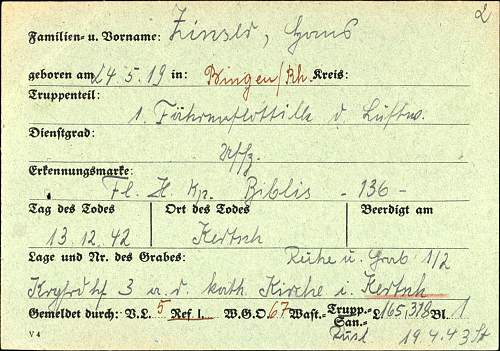 2
Familien- u. Vorname: Zinser, Hans
geboren am 24.5.19 in: Bingen/Rh. Kreis:
Truppenteil:
1. Fährenflottille d. Luftw.
Dienstgrad:
Uffz.
Erkennungsmarke:
Fl. H. Kp. Biblis - 136 -
Tag des Todes Ort des Todes Beerdigt am
13.12.42 Kertsch
Lage und Nr. des Grabes: Reihe u. Grab 1/2
Krgfrdhf 3 a. d. kath. Kirche i. Kertsch
Gemeldet durch: V.L. 5 Ref. I. W.G.O. 67 Wast.- Trupp.- San.- L 165,318 Bl. 1
V 4 19.4.43